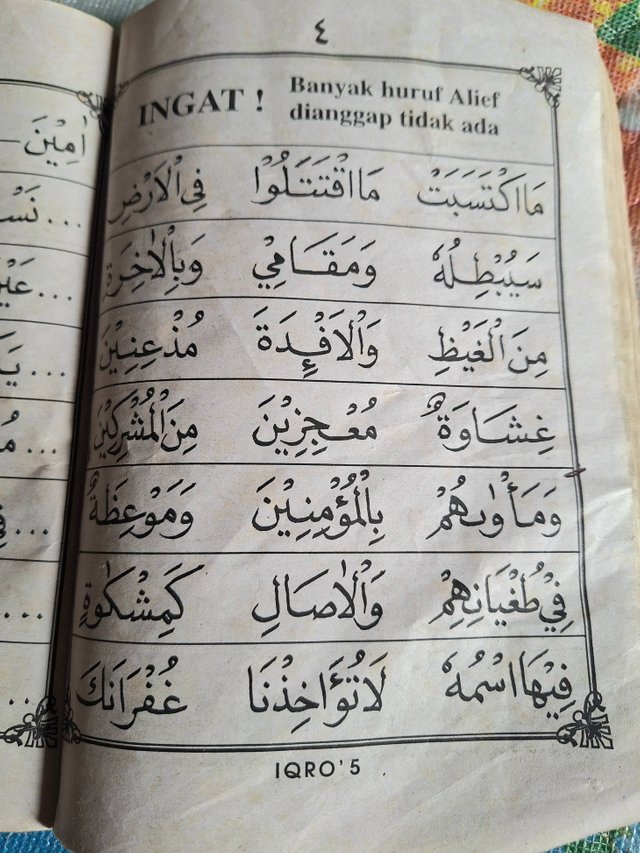 ٤
INGAT !
Banyak huruf Alief
dianggap tidak ada
مَااكْتَسَبَتْ مَااقْتَتَلُوْا فِى الْاَرْضِ
سَيُبْطِلُهٗ وَمَقَامِيْ وَبِالْاٰخِرَةِ
مِنَ الْغَيْظِ وَالْاَفْـِٕدَةَ مُذْعِنِيْنَ
غِشَاوَةٌ مُعْجِزِيْنَ مِنَ الْمُشْرِكِيْنَ
وَمَأْوٰىهُمْ بِالْمُؤْمِنِيْنَ وَمَوْعِظَةٌ
فِيْ طُغْيَانِهِمْ وَالْاٰصَالِ كَمِشْكٰوةٍ
فِيْهَااسْمُهٗ لَاتُؤَاخِذْنَا غُفْرَانَكَ
IQRO' 5
اٰمِيْنَ